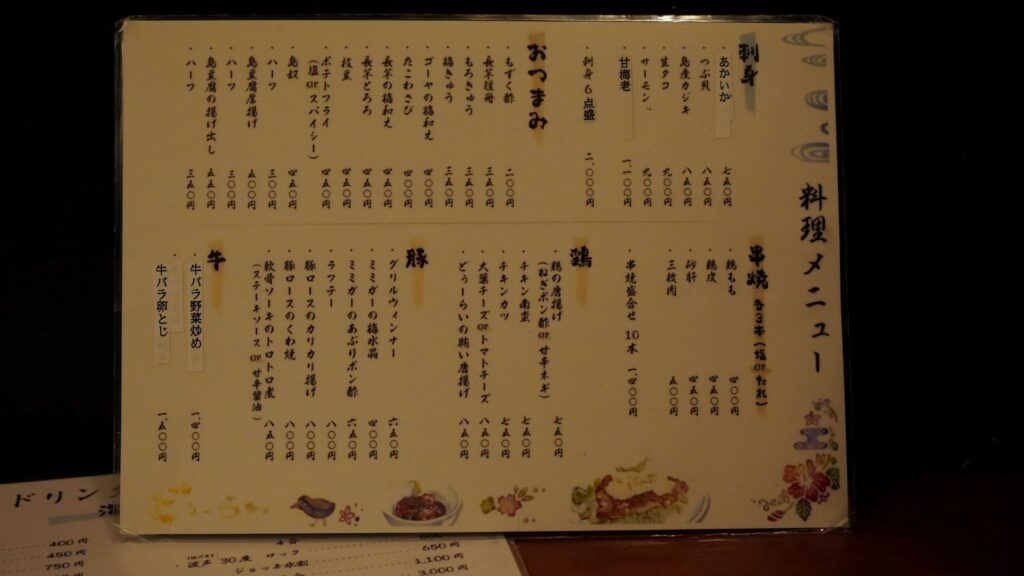 料理メニュー
刺身
あかいか 七五〇円
・つぶ貝 八五〇円
・島産カジキ 八五〇円
・生タコ 九〇〇円
・サーモン 九〇〇円
甘海老 一、一〇〇円
・刺身6点盛 二、〇〇〇円
おつまみ
・もずく酢 二〇〇円
・長芋短冊 三五〇円
・もろきゅう 三五〇円
・梅きゅう 三五〇円
・ゴーヤの梅和え 四〇〇円
・たこわさび 四〇〇円
・長芋の梅和え 四五〇円
・長芋とろろ 四五〇円
・枝豆 四五〇円
・ポテトフライ 四五〇円
(塩 or スパイシー)
・島奴 四五〇円
・ハーフ 三〇〇円
・島豆腐厚揚げ 五〇〇円
・ハーフ 三〇〇円
・島豆腐の揚げ出し 五五〇円
・ハーフ 三五〇円
串焼 各3本(塩 or たれ)
・鶏もも 四〇〇円
・鶏皮 四五〇円
・砂肝 四五〇円
・三枚肉 五〇〇円
・串焼盛合せ 10本 一、四〇〇円
鶏
・鶏の唐揚げ 七五〇円
(ねぎポン酢 or 甘辛ネギ)
・チキン南蛮 七五〇円
・チキンカツ 七五〇円
・大葉チーズ or トマトチーズ 八五〇円
・どぅーらいの賄い唐揚げ 八五〇円
豚
・グリルウィンナー 六五〇円
・ミミガーの梅水晶 四〇〇円
・ミミガーのあぶりポン酢 六五〇円
・ラフテー 八〇〇円
・豚ロースのカリカリ揚げ 八〇〇円
・豚ロースのくわ焼 八〇〇円
・軟骨ソーキのトロトロ煮 八五〇円
(ステーキソース or 甘辛醤油)
牛
・牛バラ野菜炒め 一、四〇〇円
・牛バラ卵とじ 一、五〇〇円
ドリン
400円
450円
750円
4合
(はごろも)
・波声 30度 ロック 650円
ジョッキ水割 1,100円
3,000円